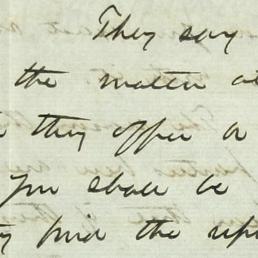 They say
the matter
they offer a
You shall be
find the